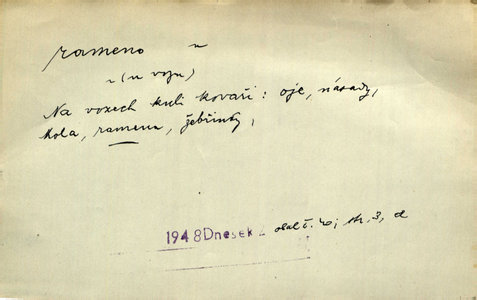 rameno
(u vozu)
Na vozech kuli kováři: oje, násady,
kola, ramena, žebřinky,
1948 Dnesek str. 3, d